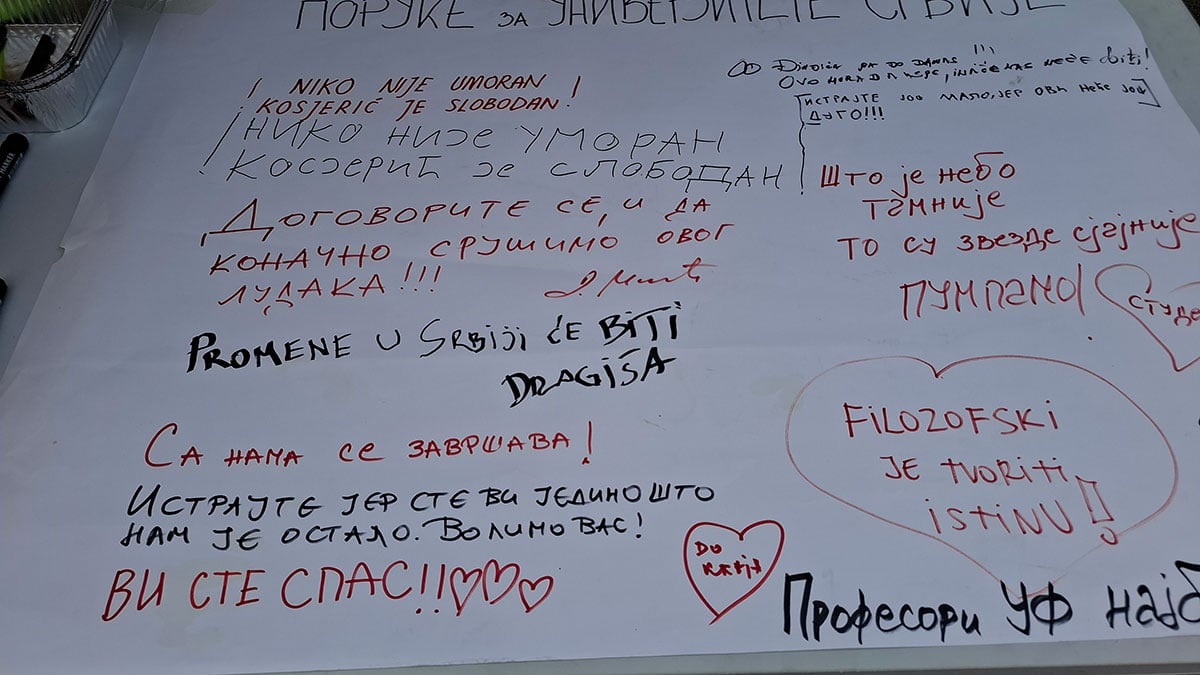 ПОРУКЕ ЗА УНИВЕРЗИТЕТЕ СРБИЈЕ
! NIKO NIJE UMORAN !
KOSJERIĆ JE SLOBODAN!
НИКО НИЈЕ УМОРАН
КОСЈЕРИЋ ЈЕ СЛОБОДАН!
ДОГОВОРИТЕ СЕ, И ДА
КОНАЧНО СРУШИМО ОВОГ
ЛУДАКА!!!
PROMENE U SRBIJI ĆE BITI
DRAGIŠA
СА НАМА СЕ ЗАВРШАВА!
ИСТРАЈТЕ ЈЕР СТЕ ВИ ЈЕДИНО ШТО
НАМ ЈЕ ОСТАЛО. ВОЛИМО ВАС!
ВИ СТЕ СПАС!!
OD DO DANAS !!!
OVO MORA DA, INAČE NAS NEĆE biti!
ИСТРАЈТЕ ЈОШ МАЛО, ЈЕР ОВИ НЕЋЕ ЈОШ
ДУГО!!!
ШТО ЈЕ НЕБО
ТАМНИЈЕ
ТО СУ ЗВЕЗДЕ СЈАЈНИЈЕ
ПУМПАМО!
СТУДЕ
FILOZOFSKI
JE TVORITI
ISTINU!!
DO
Професори УФ нај